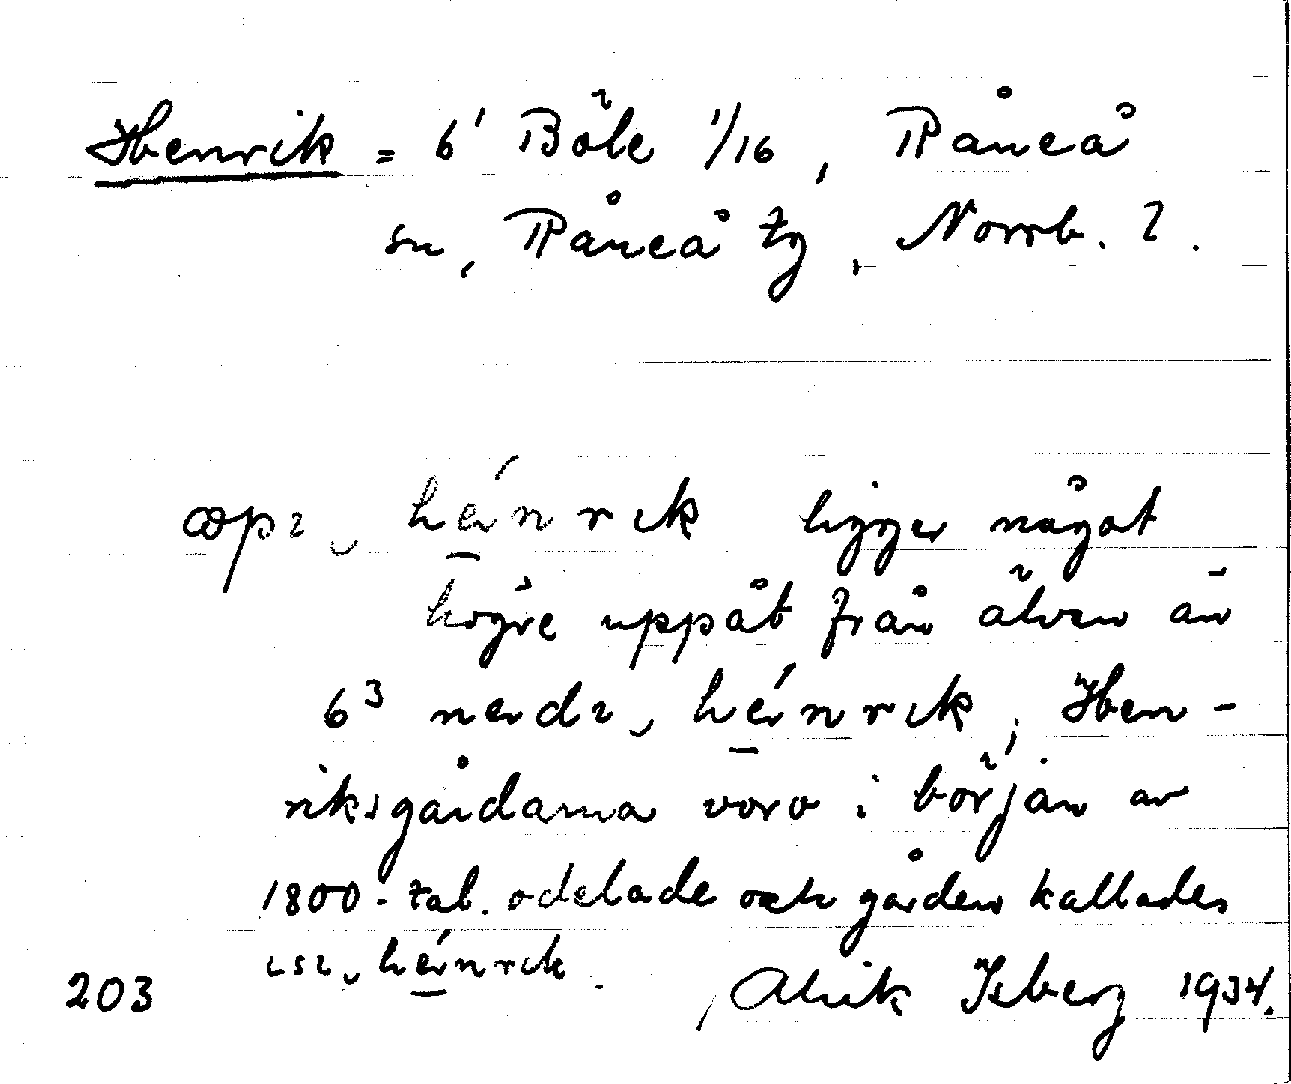 Henrik = 6¹ Böle 1/16, Råneå
sn, Råneå tg, Norrb. l.
œpɩ‿ hénrɩk ligger något
högre uppåt från älven än
6³ nerdɩ‿ hénrɩk; Hen-
riksgårdarna voro i början av
1800-tal. odelade och gården kallades
ɩsɩ‿ hénrɩk.
203 Alrik Isberg 1934.